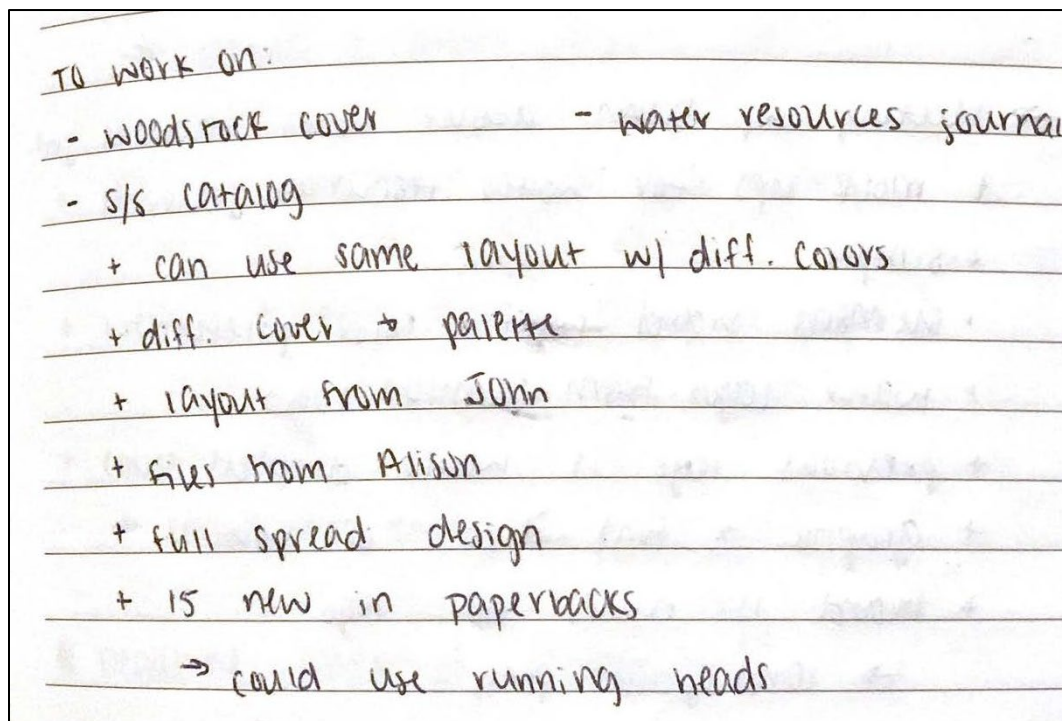 To work on:
- woodstock cover - water resources journal
- s/s catalog
+ can use same layout w/ diff. colors
+ diff. cover + palette
+ layout from John
+ files from Alison
+ full spread design
+ 15 new in paperbacks
→ could use running heads